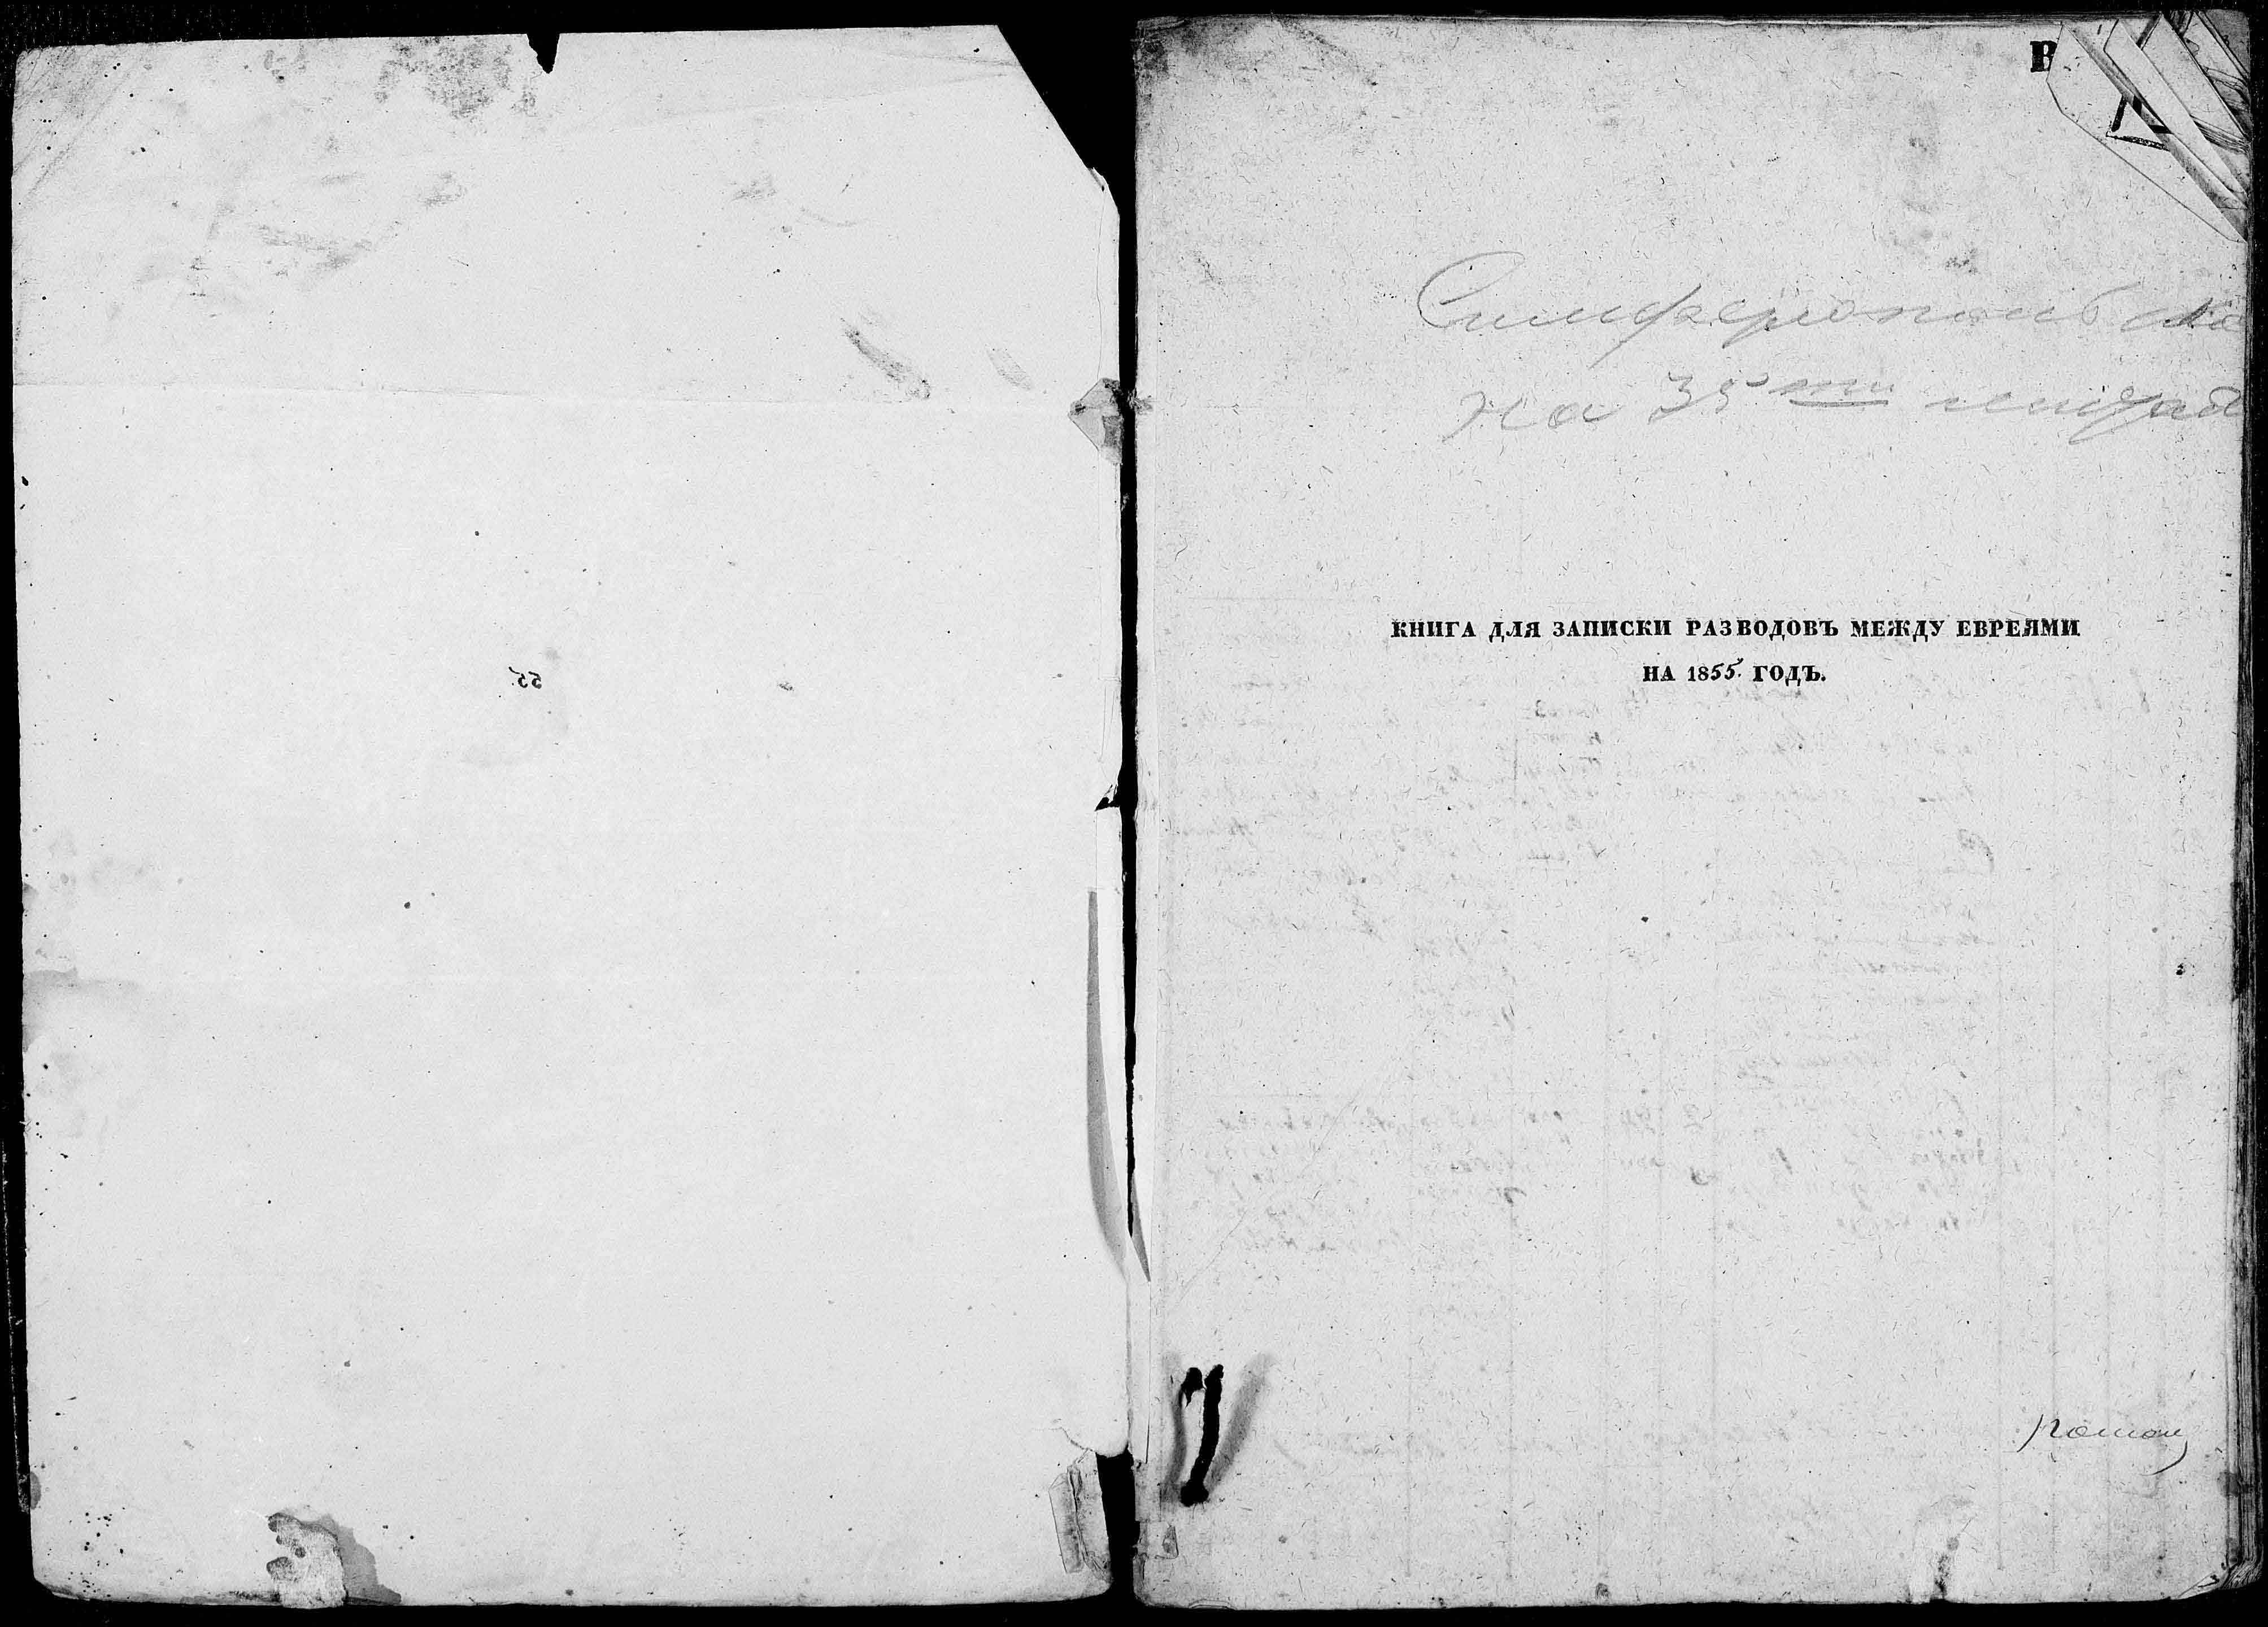 55
В
Симферопольска
на 35 ти
КНИГА ДЛЯ ЗАПИСКИ РАЗВОДОВЪ МЕЖДУ ЕВРЕЯМИ
НА 1855. ГОДЪ.